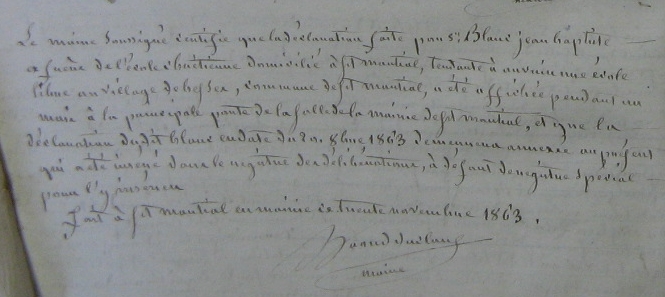 Le maire soussigné certifie que la déclaration faite par sr. Blanc jean baptiste
frère de l'école chrétienne domicilié à st martial, tendante à ouvrir une école
libre au village de besses, commune de st martial, a été affichée pendant un
mois à la principale porte de la salle de la mairie de st martial, et que la
déclaration du dit blanc en date du 8bre 1863 demeurera annexée au présent
qui a été inséré dans le régistre des délibérations, à défaut de régistre spécial
pour l'y insérer
fait à st martial en mairie ce trente novembre 1863.
maire